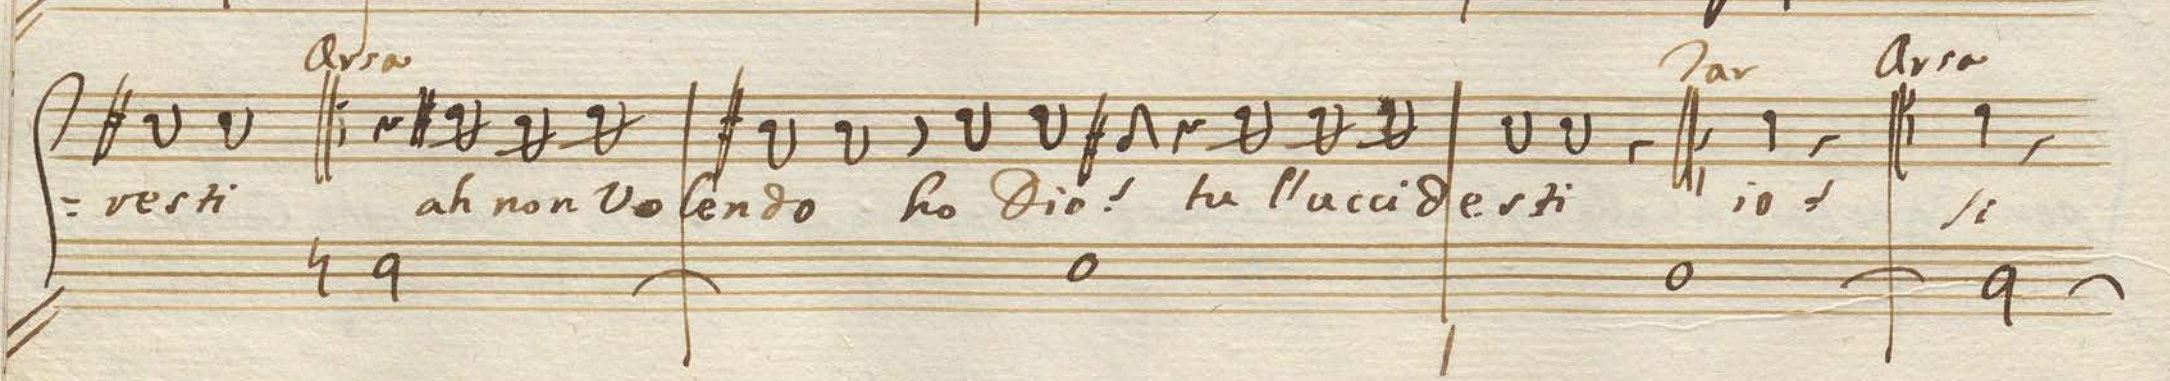 Arsa Tar Arsa
= resti ah non Volendo ho Dio! tu l'uccidesti io! si